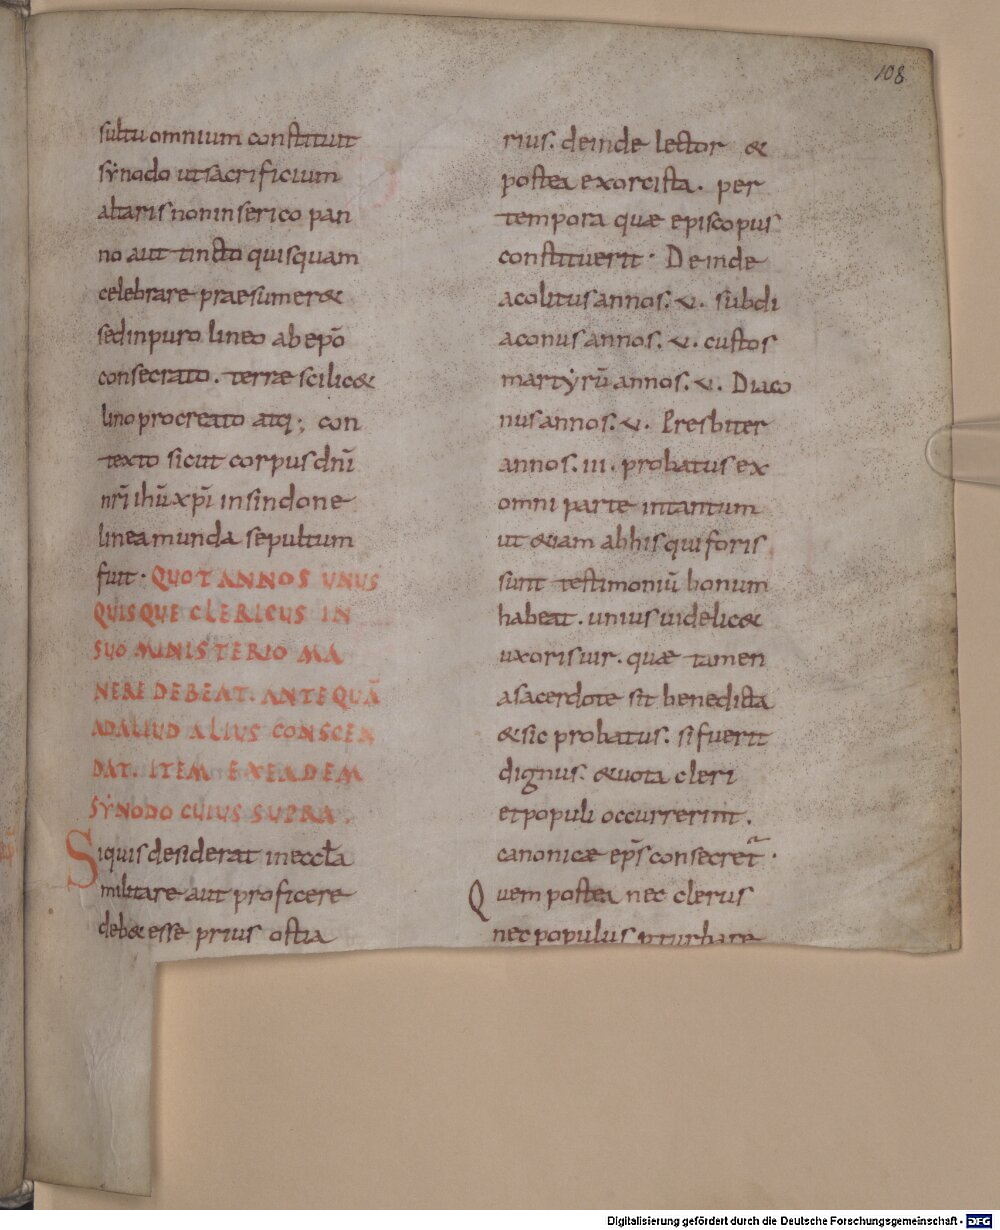 108
sultu omnium constituit
sẏnodo ut sacrificium
altaris non in serico pan
no aut tincto quisquam
celebrare praesumer&
sed in puro lineo ab ep̄o
consecrato. terrae scilic&
lino procreato atq:, con
texto sicut corpus dn̄i
nr̄i ih̄u xp̄i in sindone
linea munda sepultum
fuit· QUOT ANNOS UNUS
QUISQUE CLERICUS IN
SUO MINISTERIO MA
NERE DEBEAT. ANTEQUĀ
AD ALIUD ALIUS CONSCEN
DAT. ITEM EX EADEM
SẎNODO CUIUS SUPRA.
Si quis desiderat in eccła
militare aut proficere
deb& esse prius ostia
rius. deinde lector &
postea exorcista. per
tempora quae episcopus
constituerit· Deinde
acolitus annos. v. subdi
aconus annos. v. custos
martẏrū annos. v. Diaco
nus annos. v. Presbiter
annos. iii. probatus ex
omni parte intantum
ut &iam ab his qui foris
sunt testimoniū bonum
habeat. unius uidelic&
uxoris uir. quae tamen
a sacerdote sit benedicta
& sic probatus. si fuerit
dignus. & uota cleri
et populi occurrerint.
canonicae ep̄s consecret̄·
Quem postea nec clerus
nec populus pturbare
Digitalisierung gefördert durch die Deutsche Forschungsgemeinschaft - DFG